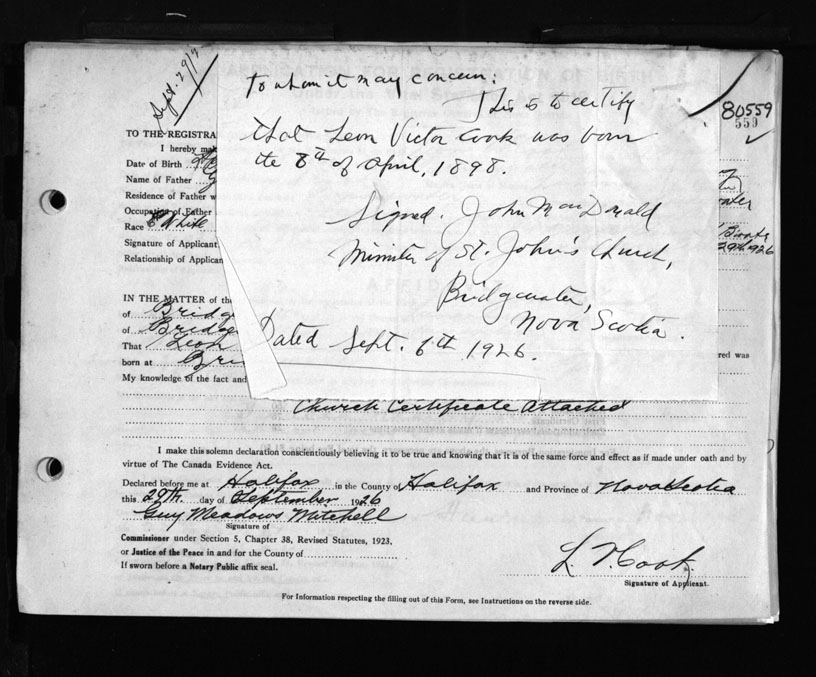 Sept. 29/
To whom it may concern:
This is to certify
that Leon Victor Cook was born
the 8th of April, 1898.
Signed. John MacDonald
Minister of St. John's Church,
Bridgewater,
Nova Scotia.
Dated Sept. 6th 1926.
80559
559
TO THE REGISTRA
I hereby mak
Date of Birth
Name of Father
Residence of Father w
Occupation of Father
Race White
Signature of Applicant
29th 926
Relationship of Applican
IN THE MATTER of the
of Bridg
of Bridge
That Leon
red was
born at Bri
My knowledge of the fact and
Church Certificate Attached
I make this solemn declaration conscientiously believing it to be true and knowing that it is of the same force and effect as if made under oath and by
virtue of The Canada Evidence Act.
Declared before me at Halifax in the County of Halifax and Province of Nova Scotia
this 29th day of September 1926
Guy Meadows Mitchell
Signature of
Commissioner under Section 5, Chapter 38, Revised Statutes, 1923,
or Justice of the Peace in and for the County of
If sworn before a Notary Public affix seal.
L. V. Cook.
Signature of Applicant.
For Information respecting the filling out of this Form, see Instructions on the reverse side.